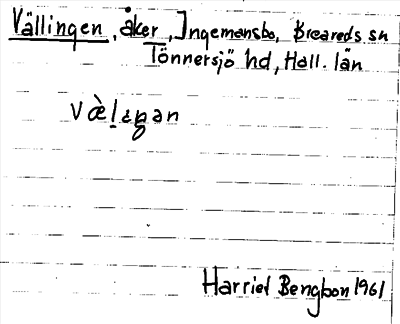 Vällingen, åker, Ingemansbo, Breareds sn
Tönnersjö hd, Hall. län
Harriet Bengtson 1961